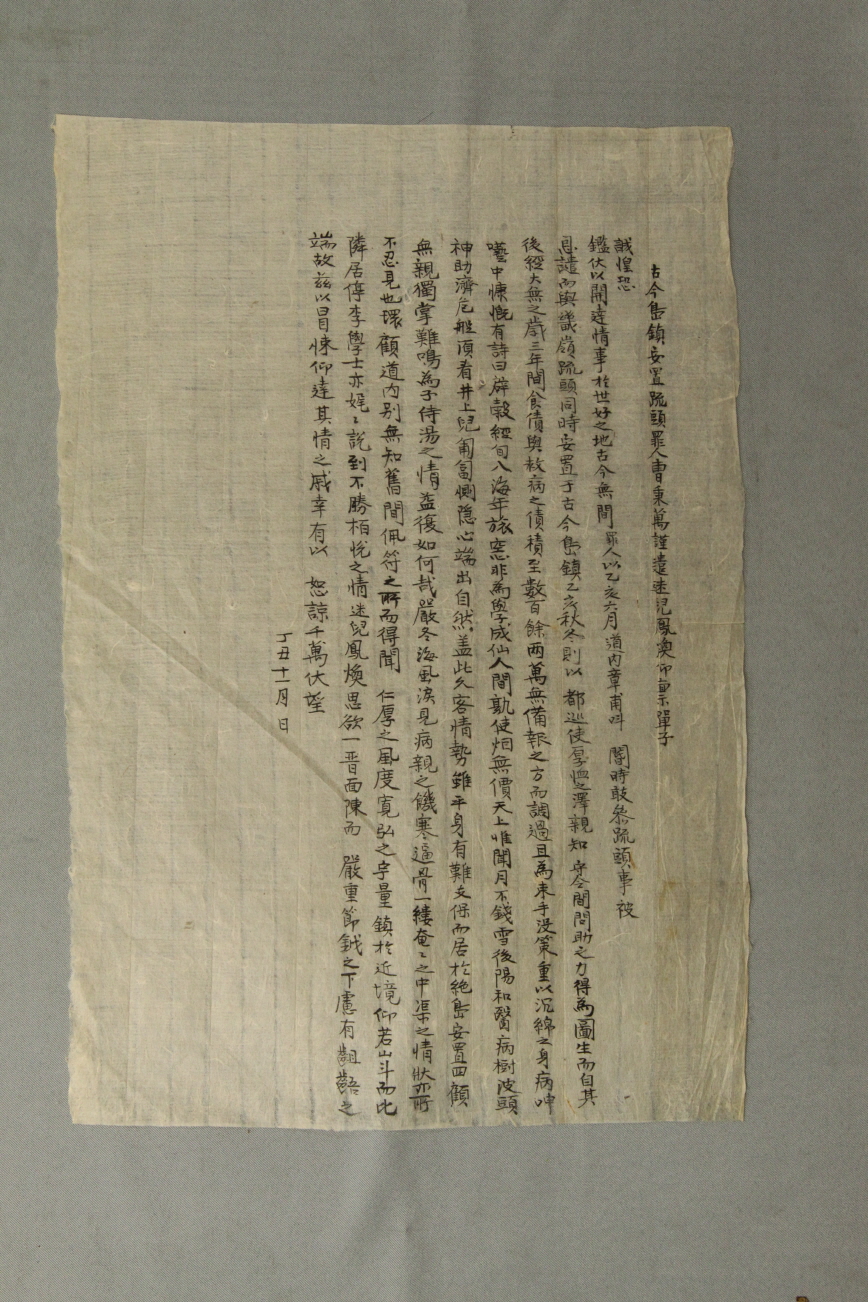 古今島鎭安置疏頭罪人曺秉萬謹遣迷兒鳳煥仰稟單子
誠惶恐
鑑伏以開達情事於世好之地古今無間 罪人以乙亥六月 道內章甫叫 閽時敢參疏頭事被
恩譴而與畿嶺疏頭同時安置于古今島鎭乙亥秋冬則以 都巡使厚恤之澤親知 守令間問助之力得爲圖生而自其
後經大無之歲三年間食債與救病之債積至數百餘兩萬無備報之方而調過且爲束手沒策重以沉綿之身病呻
囈中慷慨有詩曰辟穀經旬入海年旅窓非爲學成仙人間孰使烟無價天上惟聞月不錢雪後陽和醫病樹波頭
神助濟危船須看井上兒匍匐惻隱心端出自然盖此久客情勢雖平身有難支保而居於絶島安置四顧
無親獨掌難鳴爲子侍湯之情益復如何哉嚴冬海風淚見病親之饑寒逼骨一縷奄〻之中渠之情狀亦所
不忍見也環顧道內別無知舊間佩符之所而得聞 仁厚之風度寬弘之宇量 鎭於近境仰若山斗而比
隣居停李學士亦娓〻說到不勝栢悅之情迷兒鳳煥思欲一晋面陳而 嚴重節鉞之下慮有齟齬之
端故玆以冒悚仰達其情之戚幸有以 恕諒千萬伏望
丁丑十一月 日